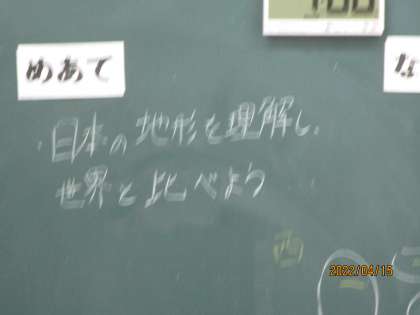 めあて
な
・日本の地形を理解し、
世界と比べよう
2022/04/15